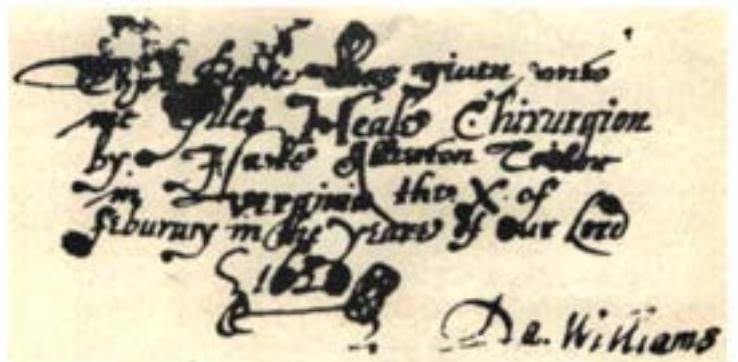 Booke Was giuen vnto
me Heale Chirurgion
by Allerton
in virginia the. X. of
feburary in the yeare of our Lord
1620
Da. Williams